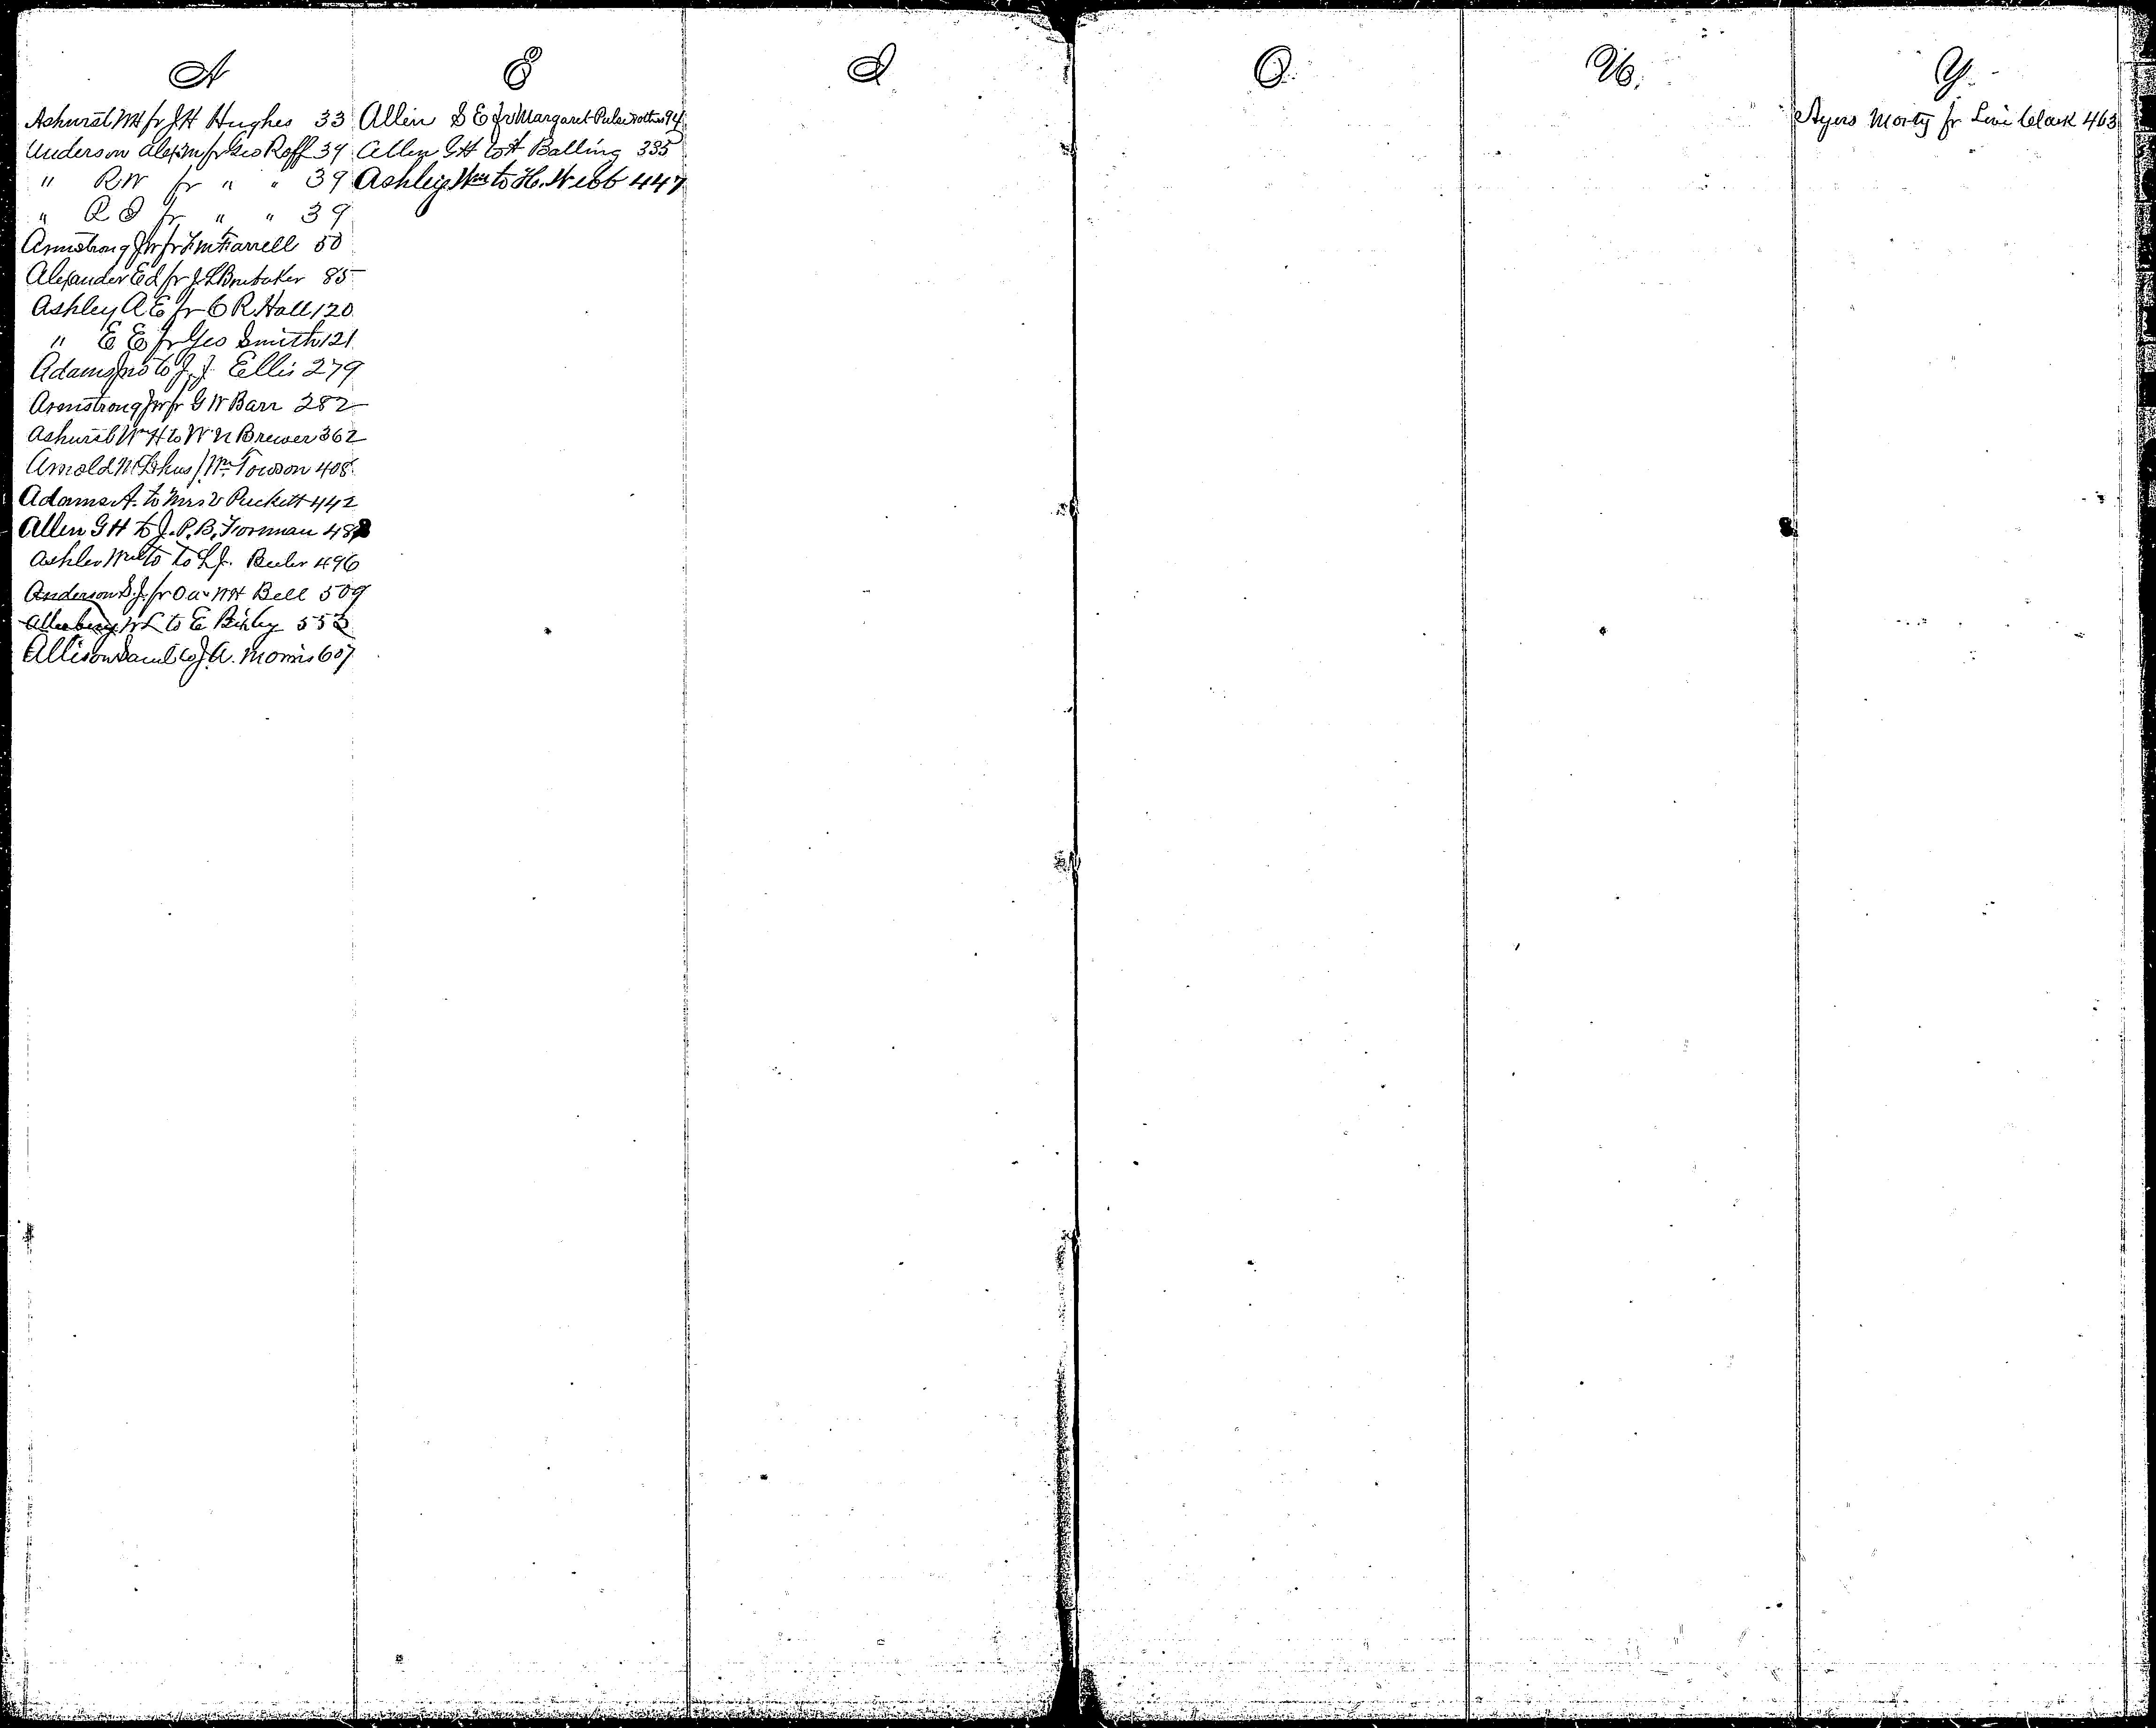 A
Ashurst WH fr J H Hughes 33
Anderson Alex m fr Geo Roff 39
" R W fr " " 39
" R I fr " " 39
Armstrong J W fr Farrell 50
Alexander Ed fr J L Brubaker 85
Ashley A E fr C R Hall 120
" E E fr Geo Smith 121
Adams Jno to J. J. Ellis 279
Armstrong J W fr G W Barr 282
Ashurst Wm H to W N Brewer 362
Arnold Wm Towson 408
Adams A. to Mrs V Puckett 442
Allen G H to J. P. B. 
to L J. Buler 496
Anderson S. J. fr WH Bell 509
W L to E Bixley 553
Allison Saml to J. A. Morris 607
E
Allen S E fr Margaret 94
Allen G H to H Balling 335
Ashley Wm to H. Webb 447
I
O.
U.
Y.
Ayers Morty fr Levi Clark 463